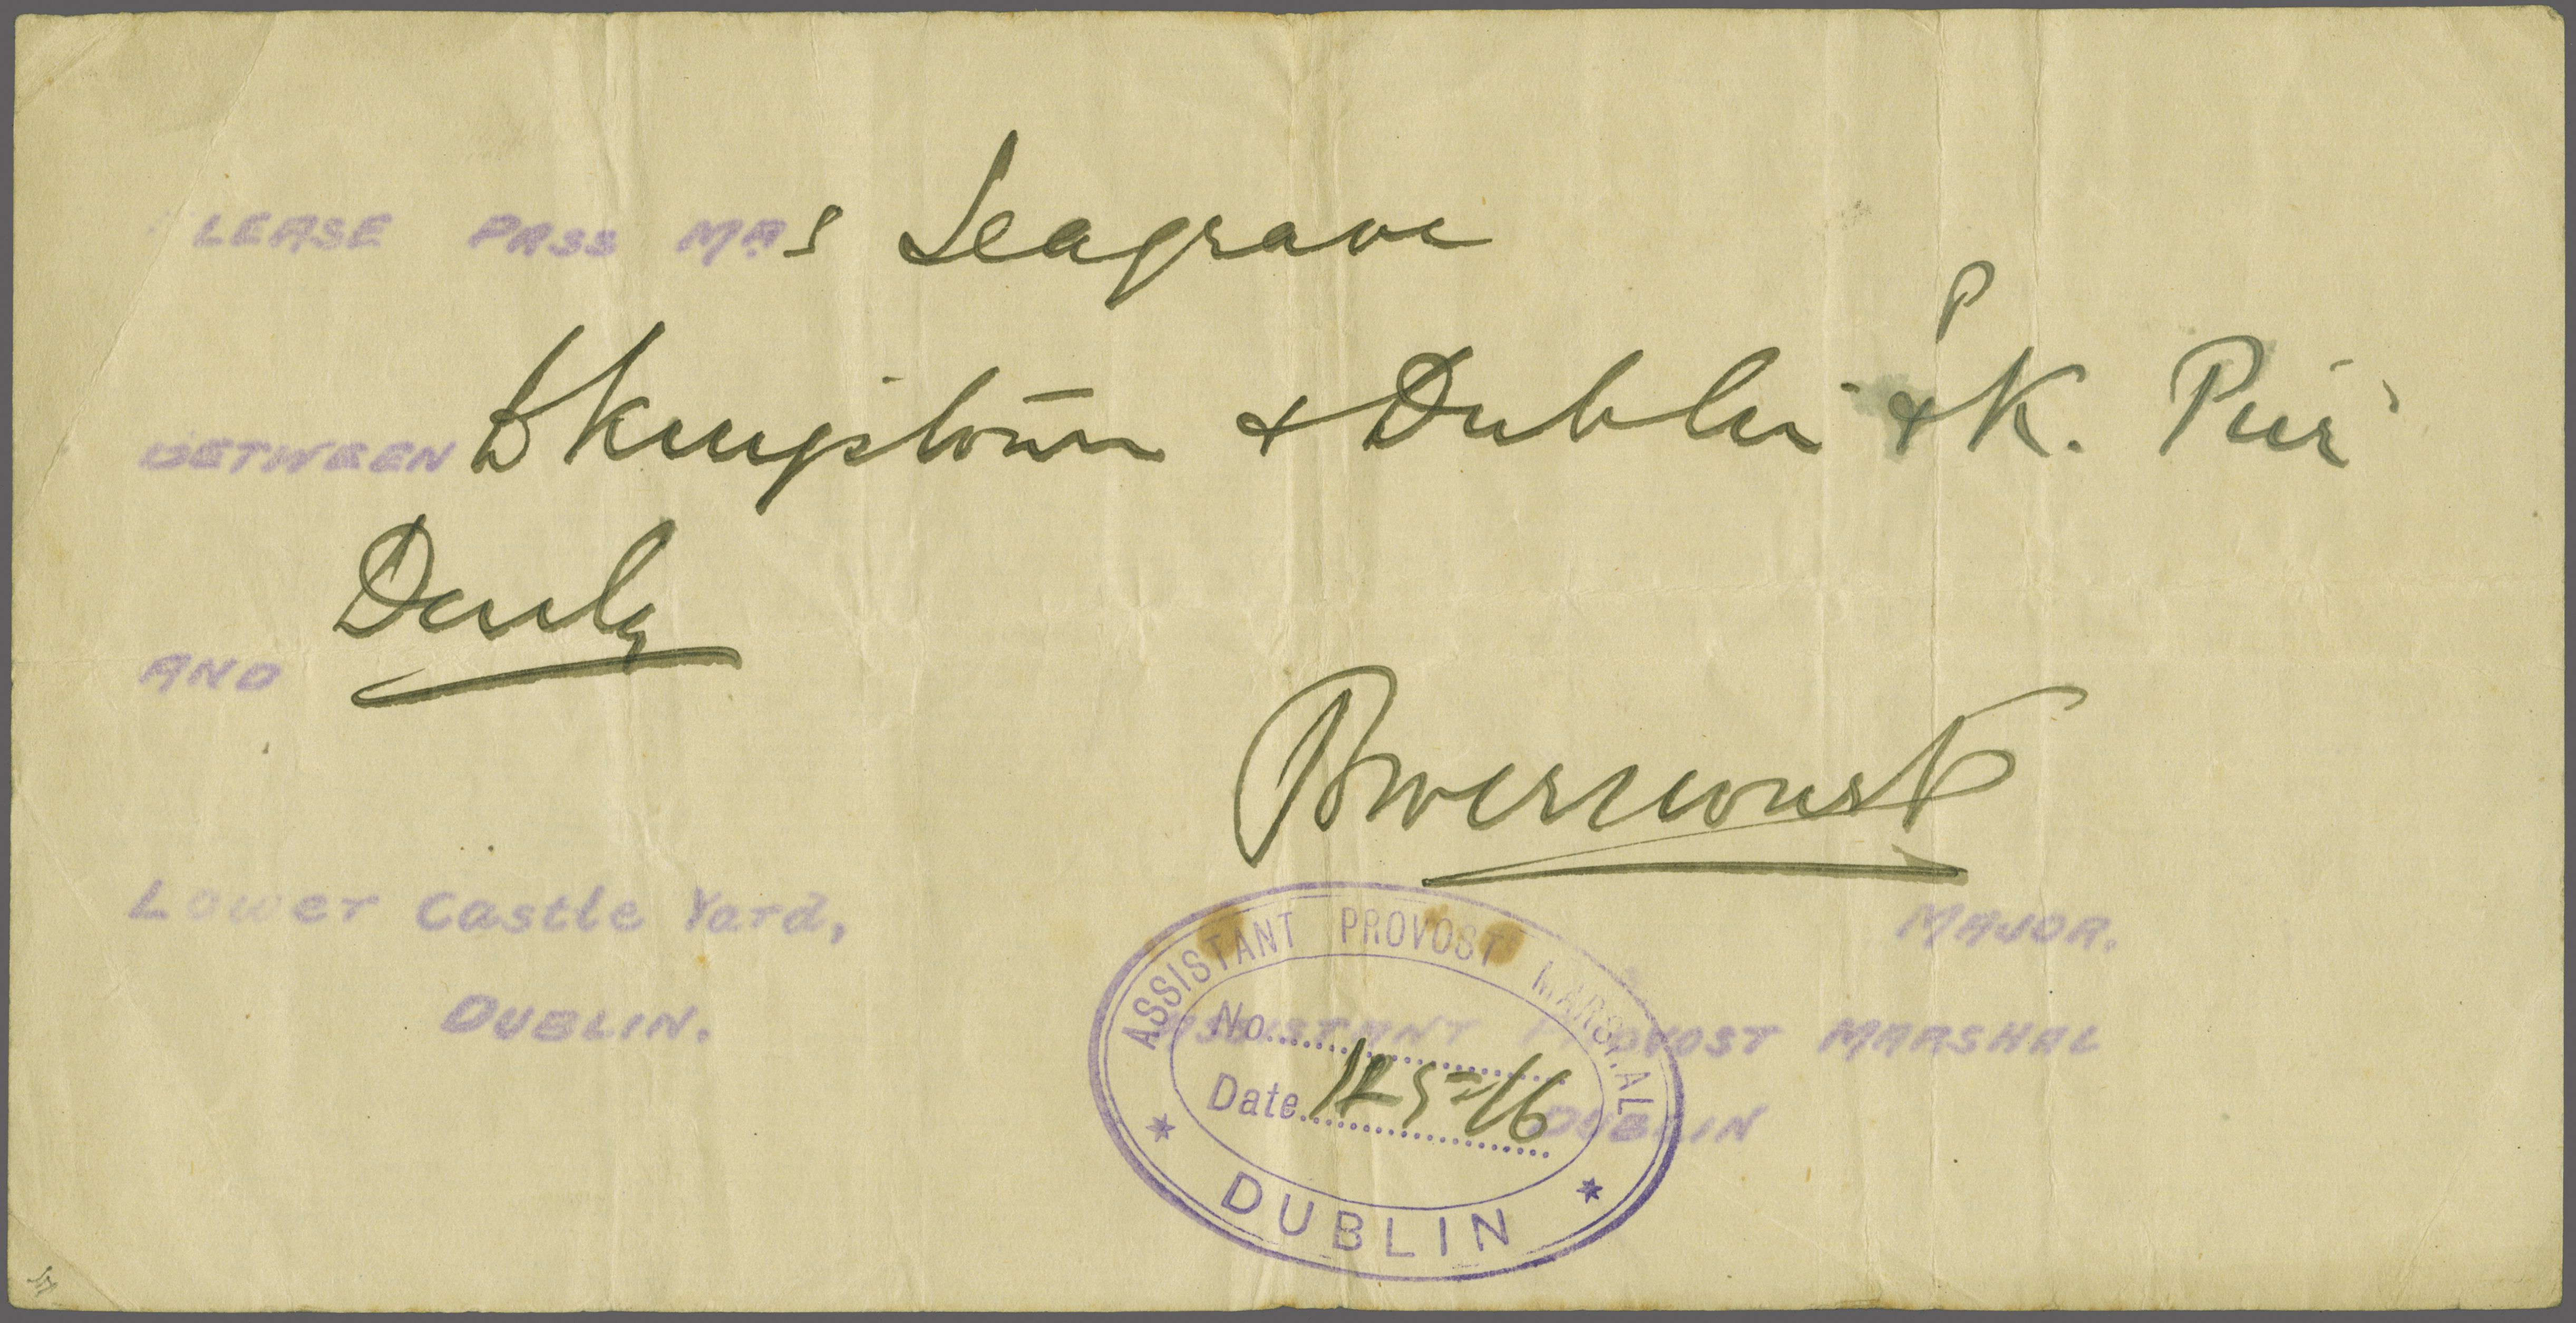 LEASE PASS MRs Seagrave
P
BETWEEN Kingstown & Dublin & K. Pier
Daily
AND
Powerscourt
Lower Castle Yard,
MAJOR.
DUBLIN.
ASSISTANT PROVOST MARSHAL
DUBLIN
ASSISTANT PROVOST MARSHAL
No.
Date 12-5-16
DUBLIN